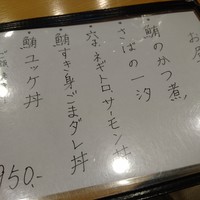 お
・鮪のかつ煮
・さばの一汐
・穴、ネギトロ、サーモン丼
・鮪すき身ごまダレ丼
・鮪ユッケ丼
950.-